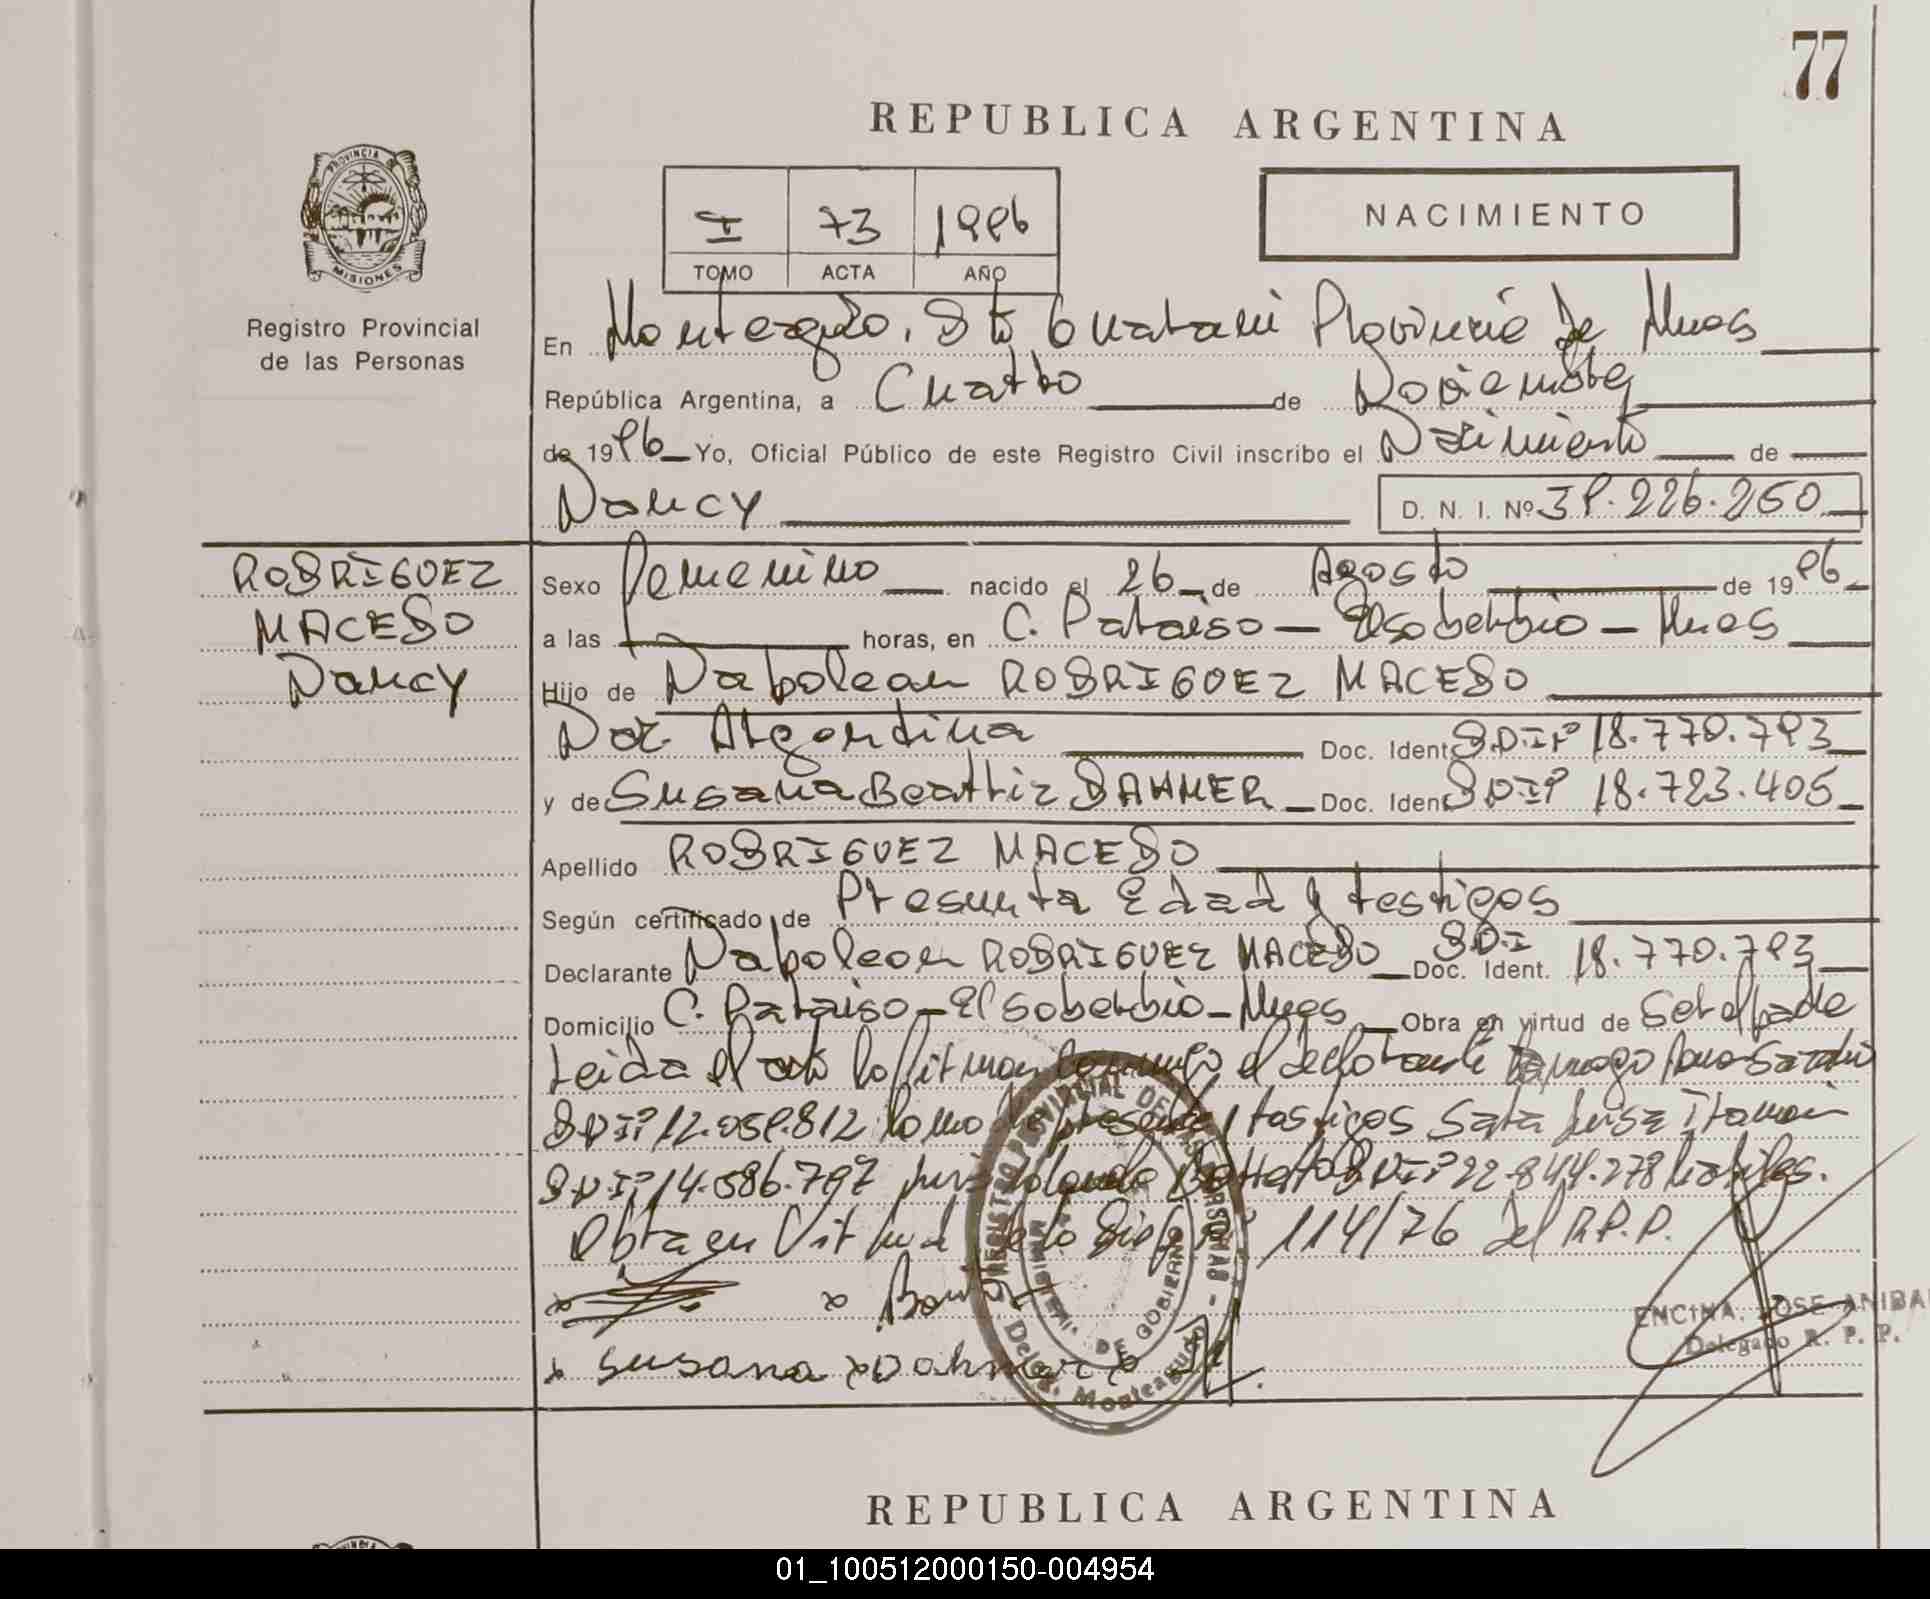 77
REPUBLICA ARGENTINA
PROVINCIA DE
MISIONES
Registro Provincial
de las Personas
I 73 1996
TOMO ACTA AÑO
NACIMIENTO
En Monteagudo. Dto Guarani Provincia de Mnes
República Argentina, a Cuatro de Noviembre
de 1996 Yo, Oficial Público de este Registro Civil inscribo el Nacimiento de
Nancy D. N. I. Nº 39.226.250
RODRIGUEZ
MACEDO
Nancy
Sexo Femenino nacido el 26 de Agosto de 1996
a las horas, en C. Paraiso - El soberbio - Mnes
Hijo de Napolean RODRIGUEZ MACEDO
Nac. Argentina Doc. Ident. DNIº 18.770.793
y de Susana Beatriz DAHMER Doc. Ident. DNIº 18.723.405
Apellido RODRIGUEZ MACEDO
Según certificado de Presunta Edad y testigos
Declarante Napolean RODRIGUEZ MACEDO Doc. Ident. DNI 18.770.793
Domicilio C. Paraiso - El soberbio - Mnes Obra en virtud de
Leida el acta la firman conmigo el declarante
DNIº 12.059.812 como de testigos
DNIº 14.586.797 DNIº 22.844.278 habiles.
Obra en Virtud de la 114/76 del R.P.P.
Susana Dahmer
REGISTRO PROVINCIAL DE LAS PERSONAS -
MINISTERIO DE GOBIERNO
Deleg. Monteagudo
ENCINA, JOSE ANIBAL
Delegado R. P. P.
REPUBLICA ARGENTINA
01_100512000150-004954